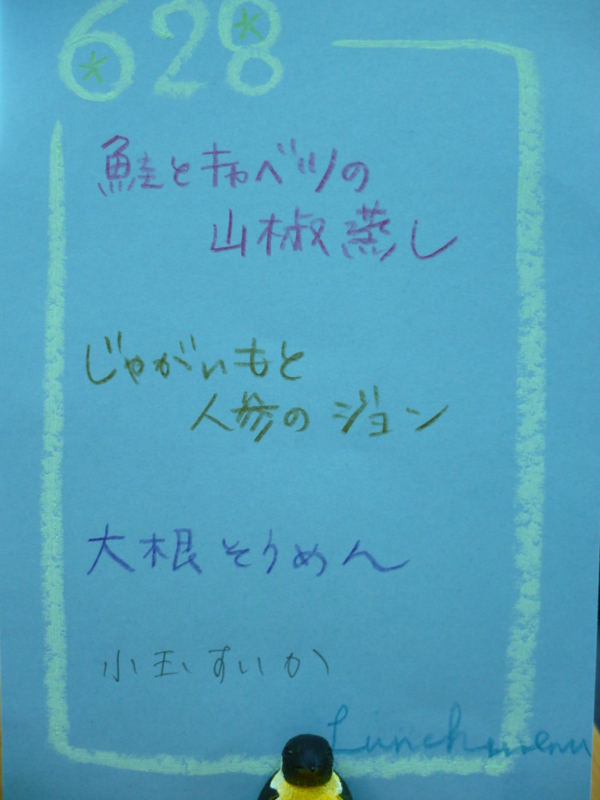 628
鮭とキャベツの
山椒蒸し
じゃがいもと
人参のジョン
大根そうめん
小玉すいか
Lunch menu